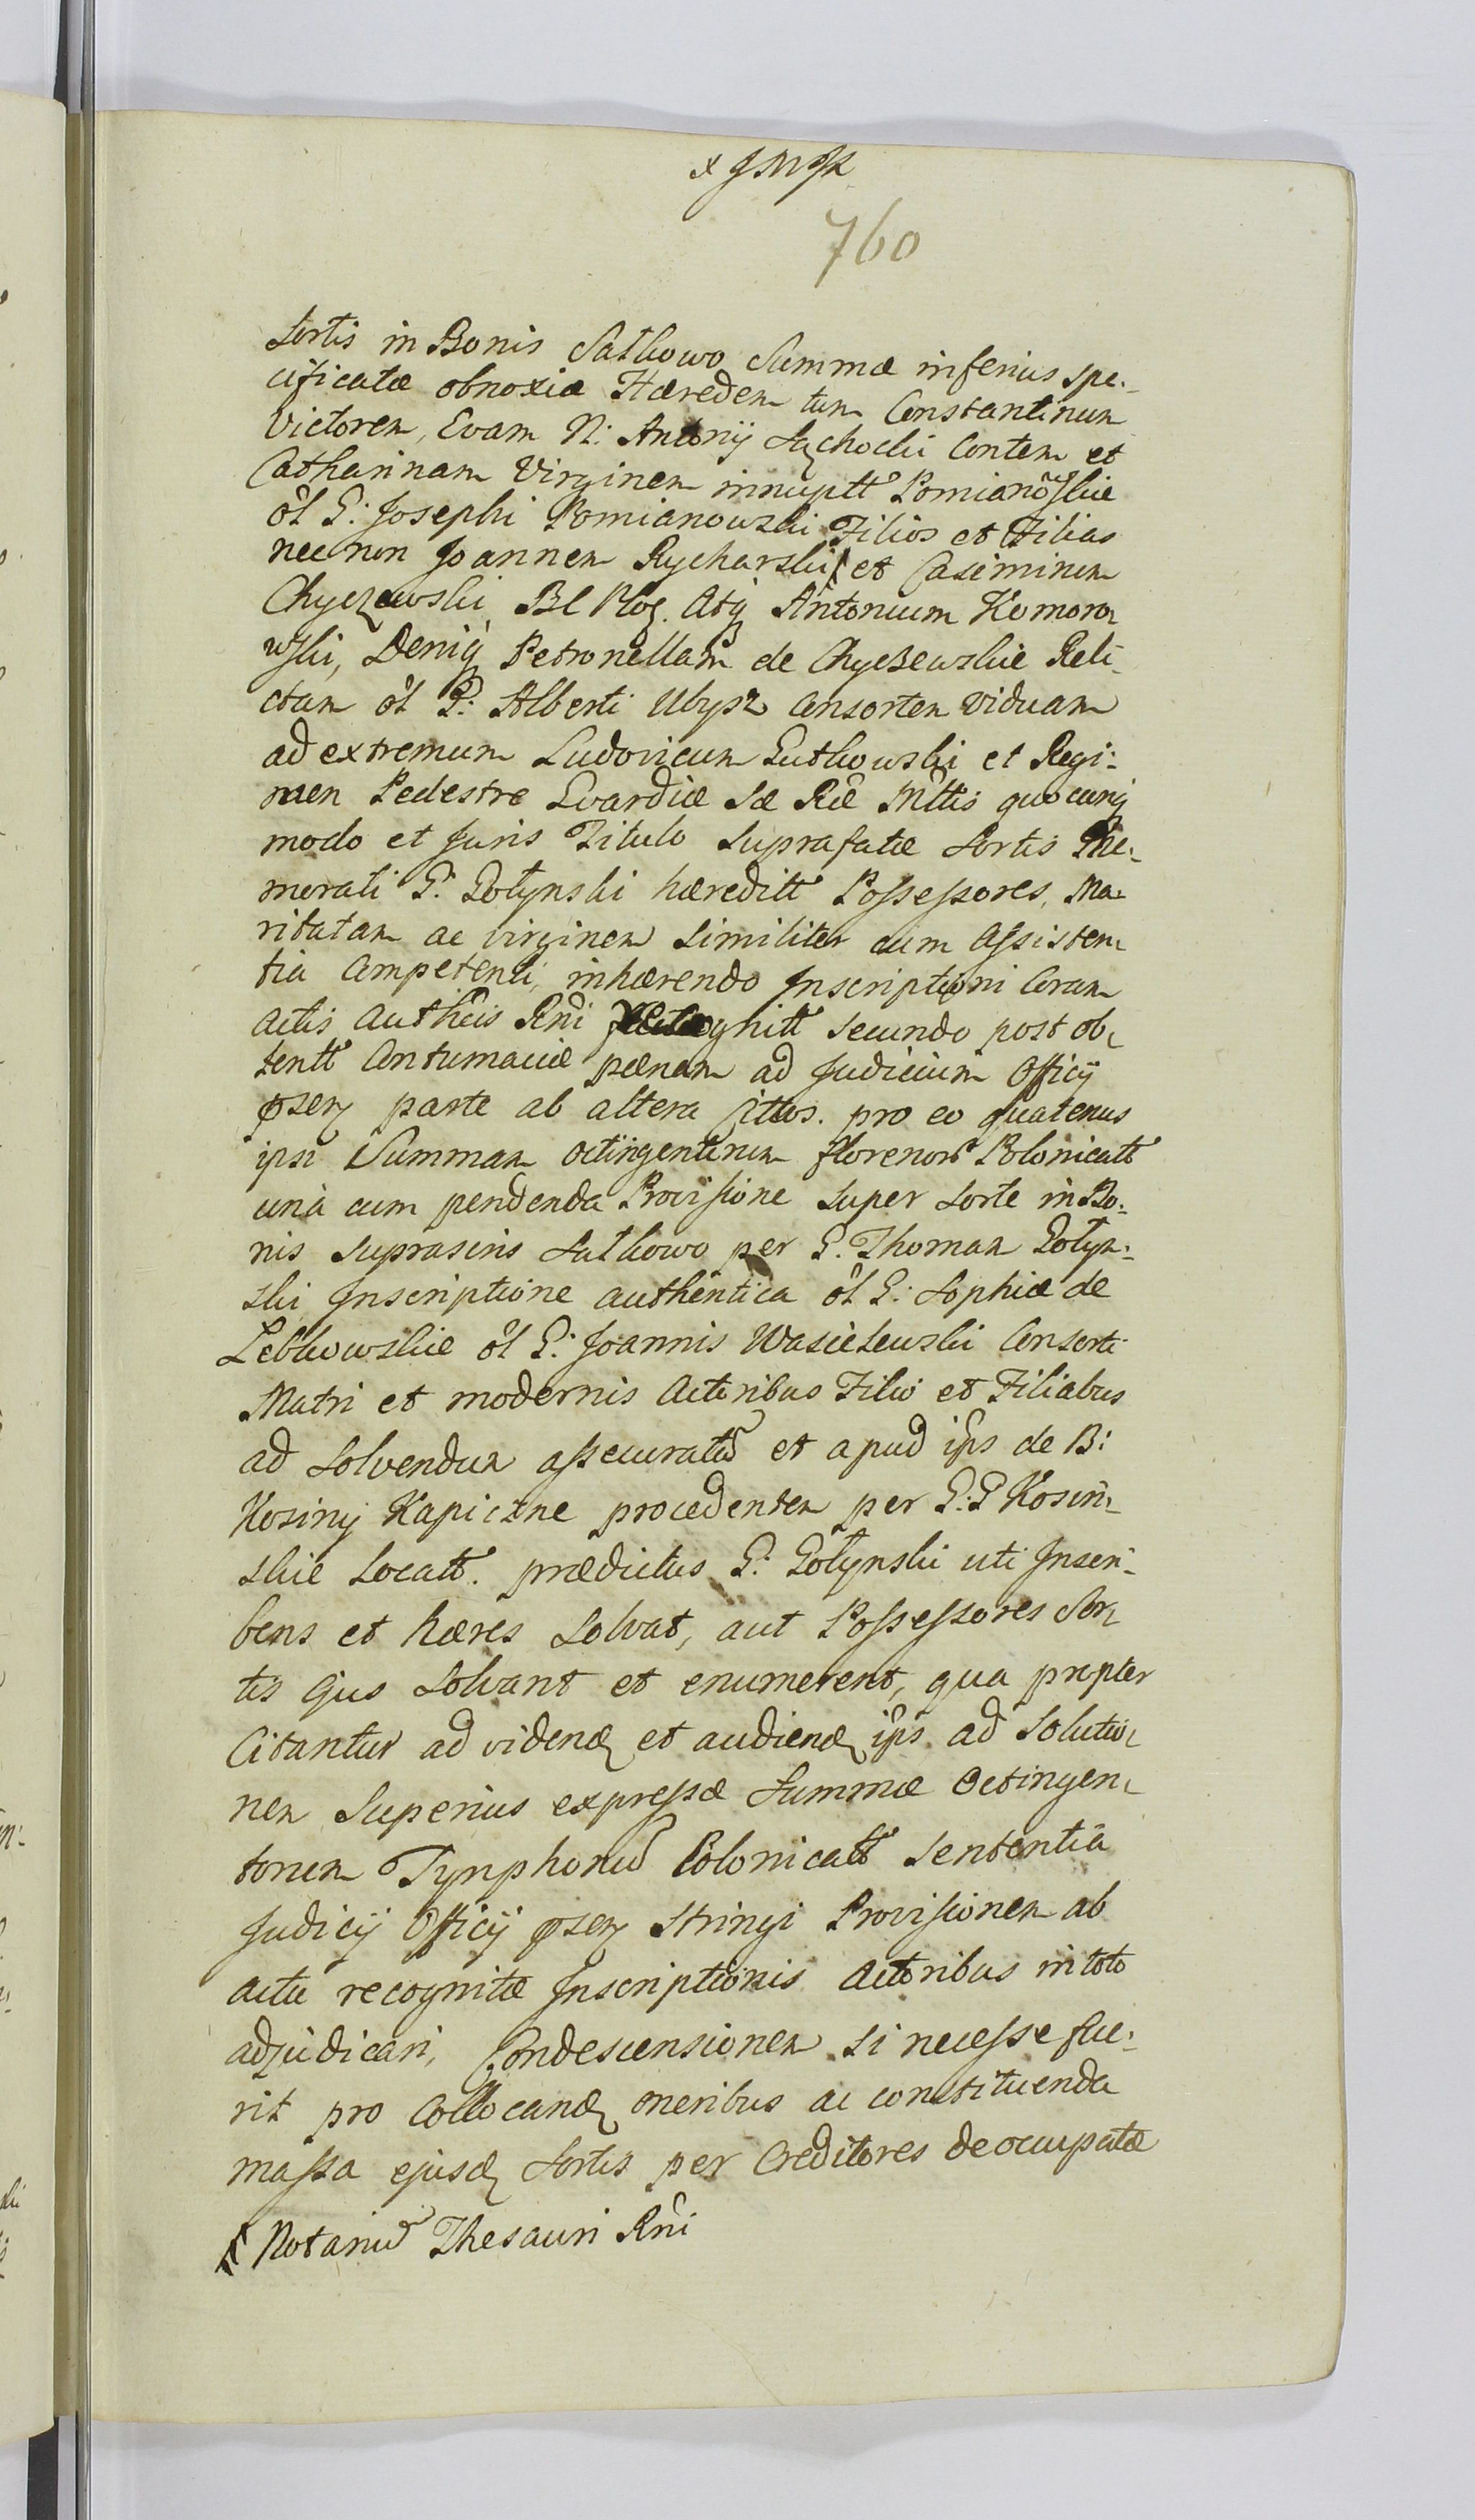 760
Sortis in Bonis Sutkowo Summæ inferius spe-
cificatæ obnoxiæ Hæredem tum Constantinum
Victorem, Evam N: Antonij Suchocki Contem et
Catharinam Virginem innuptt Pomianowskie
ol G: Josephi Pomianowski Filios et Filias
nec non Joannem Rycharski et Casimirum
Chyczewski, Bl Plog. Atq Antonium Komoro-
wski, Deniq Petronellam de Chyczewskie Reli-
ctam ol G: Alberti Ubysz Consortem viduam
ad extremum Ludovicum Gutkowski et Regi-
men Pedestre Gvardiæ Sæ Ræ Mttis quocunq
modo et Juris Titulo suprafatæ Sortis Me-
morati G: Gołynski hæreditt Possessores, Ma-
ritatam ac virginem similiter cum Assisten-
tia Competenti, inhærendo Inscriptioni Coram
Actis Authcis Rni recognitt secundo post ob-
tentt Contumaciæ pænam ad Judicium Officij
psen parte ab altera Cittos. pro eo quatenus
ipsi Summam octingentorum florenor Polonicatt
una cum pendenda Provisione super Sorte in Bo-
nis suprascris Sutkowo per G. Thomam Gołyn-
ski Inscriptione authentica ol G: Sophiæ de
Lebkowskie ol G: Joannis Wasilewski Consorti
Matri et modernis Actoribus Filio et Filiabus
ad solvendum assecurat et apud ips de B:
Kosiny Kapiczne procedentem per G:G Kosin-
skie Locatt. prædictus G: Gołynski uti Inscri-
bens et hæres solvat, aut Possessores Sor-
tis Ejus solvant et enumerent, qua propter
Citantur ad vidend et audiend ips ad solutio-
nem superius expressæ Summæ Octingen-
torum Tynphonu Polonicatt Sententia
Judicij Officij psen stringi Provisionem ab
actu recognitæ Inscriptionis Actoribus in toto
adjudicari, Condescensionem si necesse fue-
rit pro Collocand oneribus ac constituenda
massa ejusd Sortis per Creditores deoccupatæ
Notariu Thesauri Rni